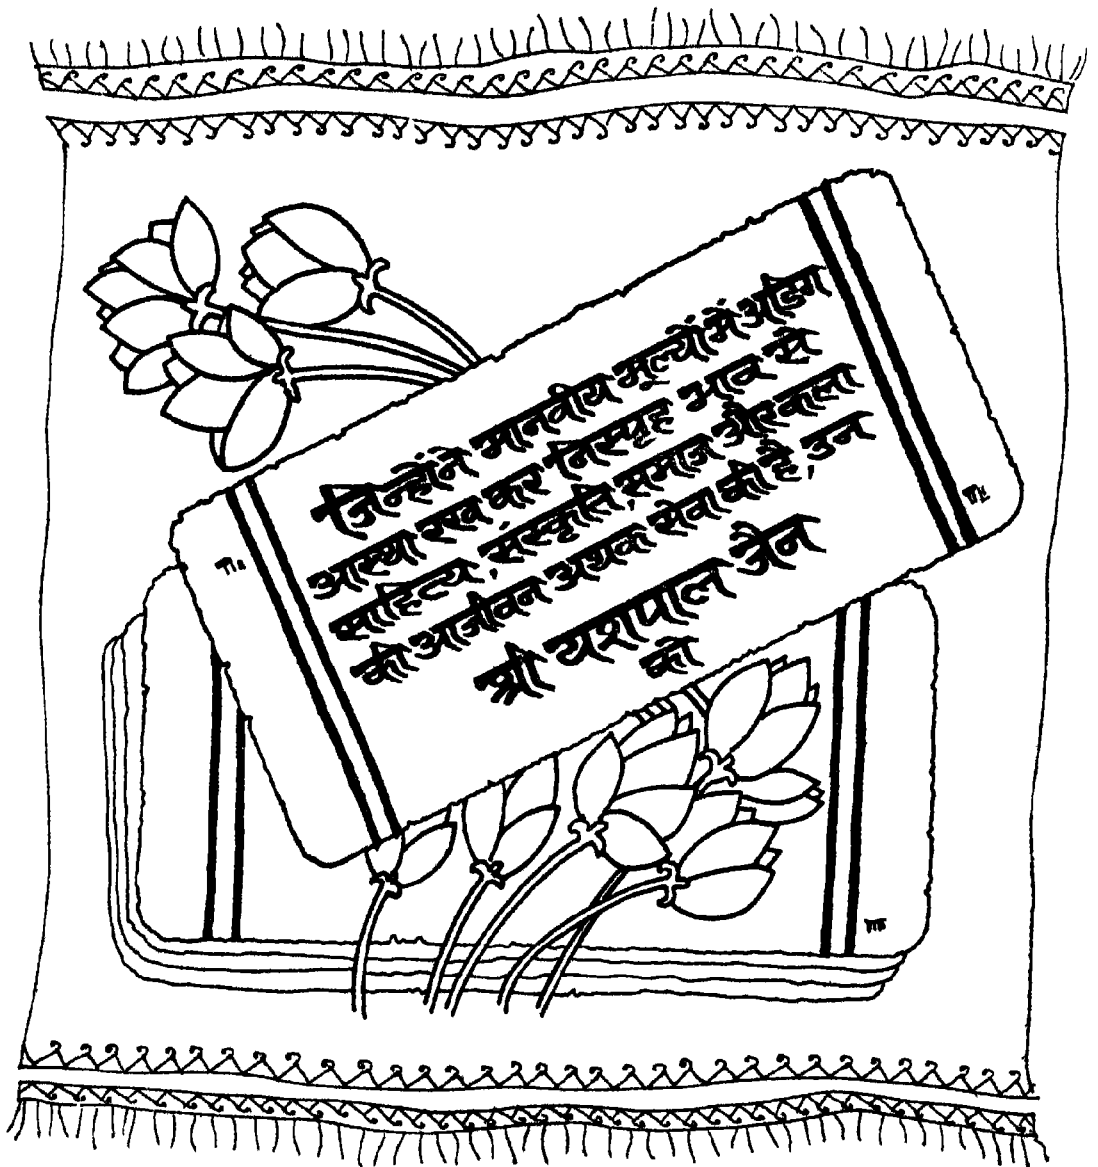 जिन्होंने मानवीय मूल्यों में अडिग
आस्था रख कर निस्पृह भाव से
साहित्य, संस्कृति, समाज और कला
की आजीवन अथक सेवा की है, उन
श्री यशपाल जैन
को